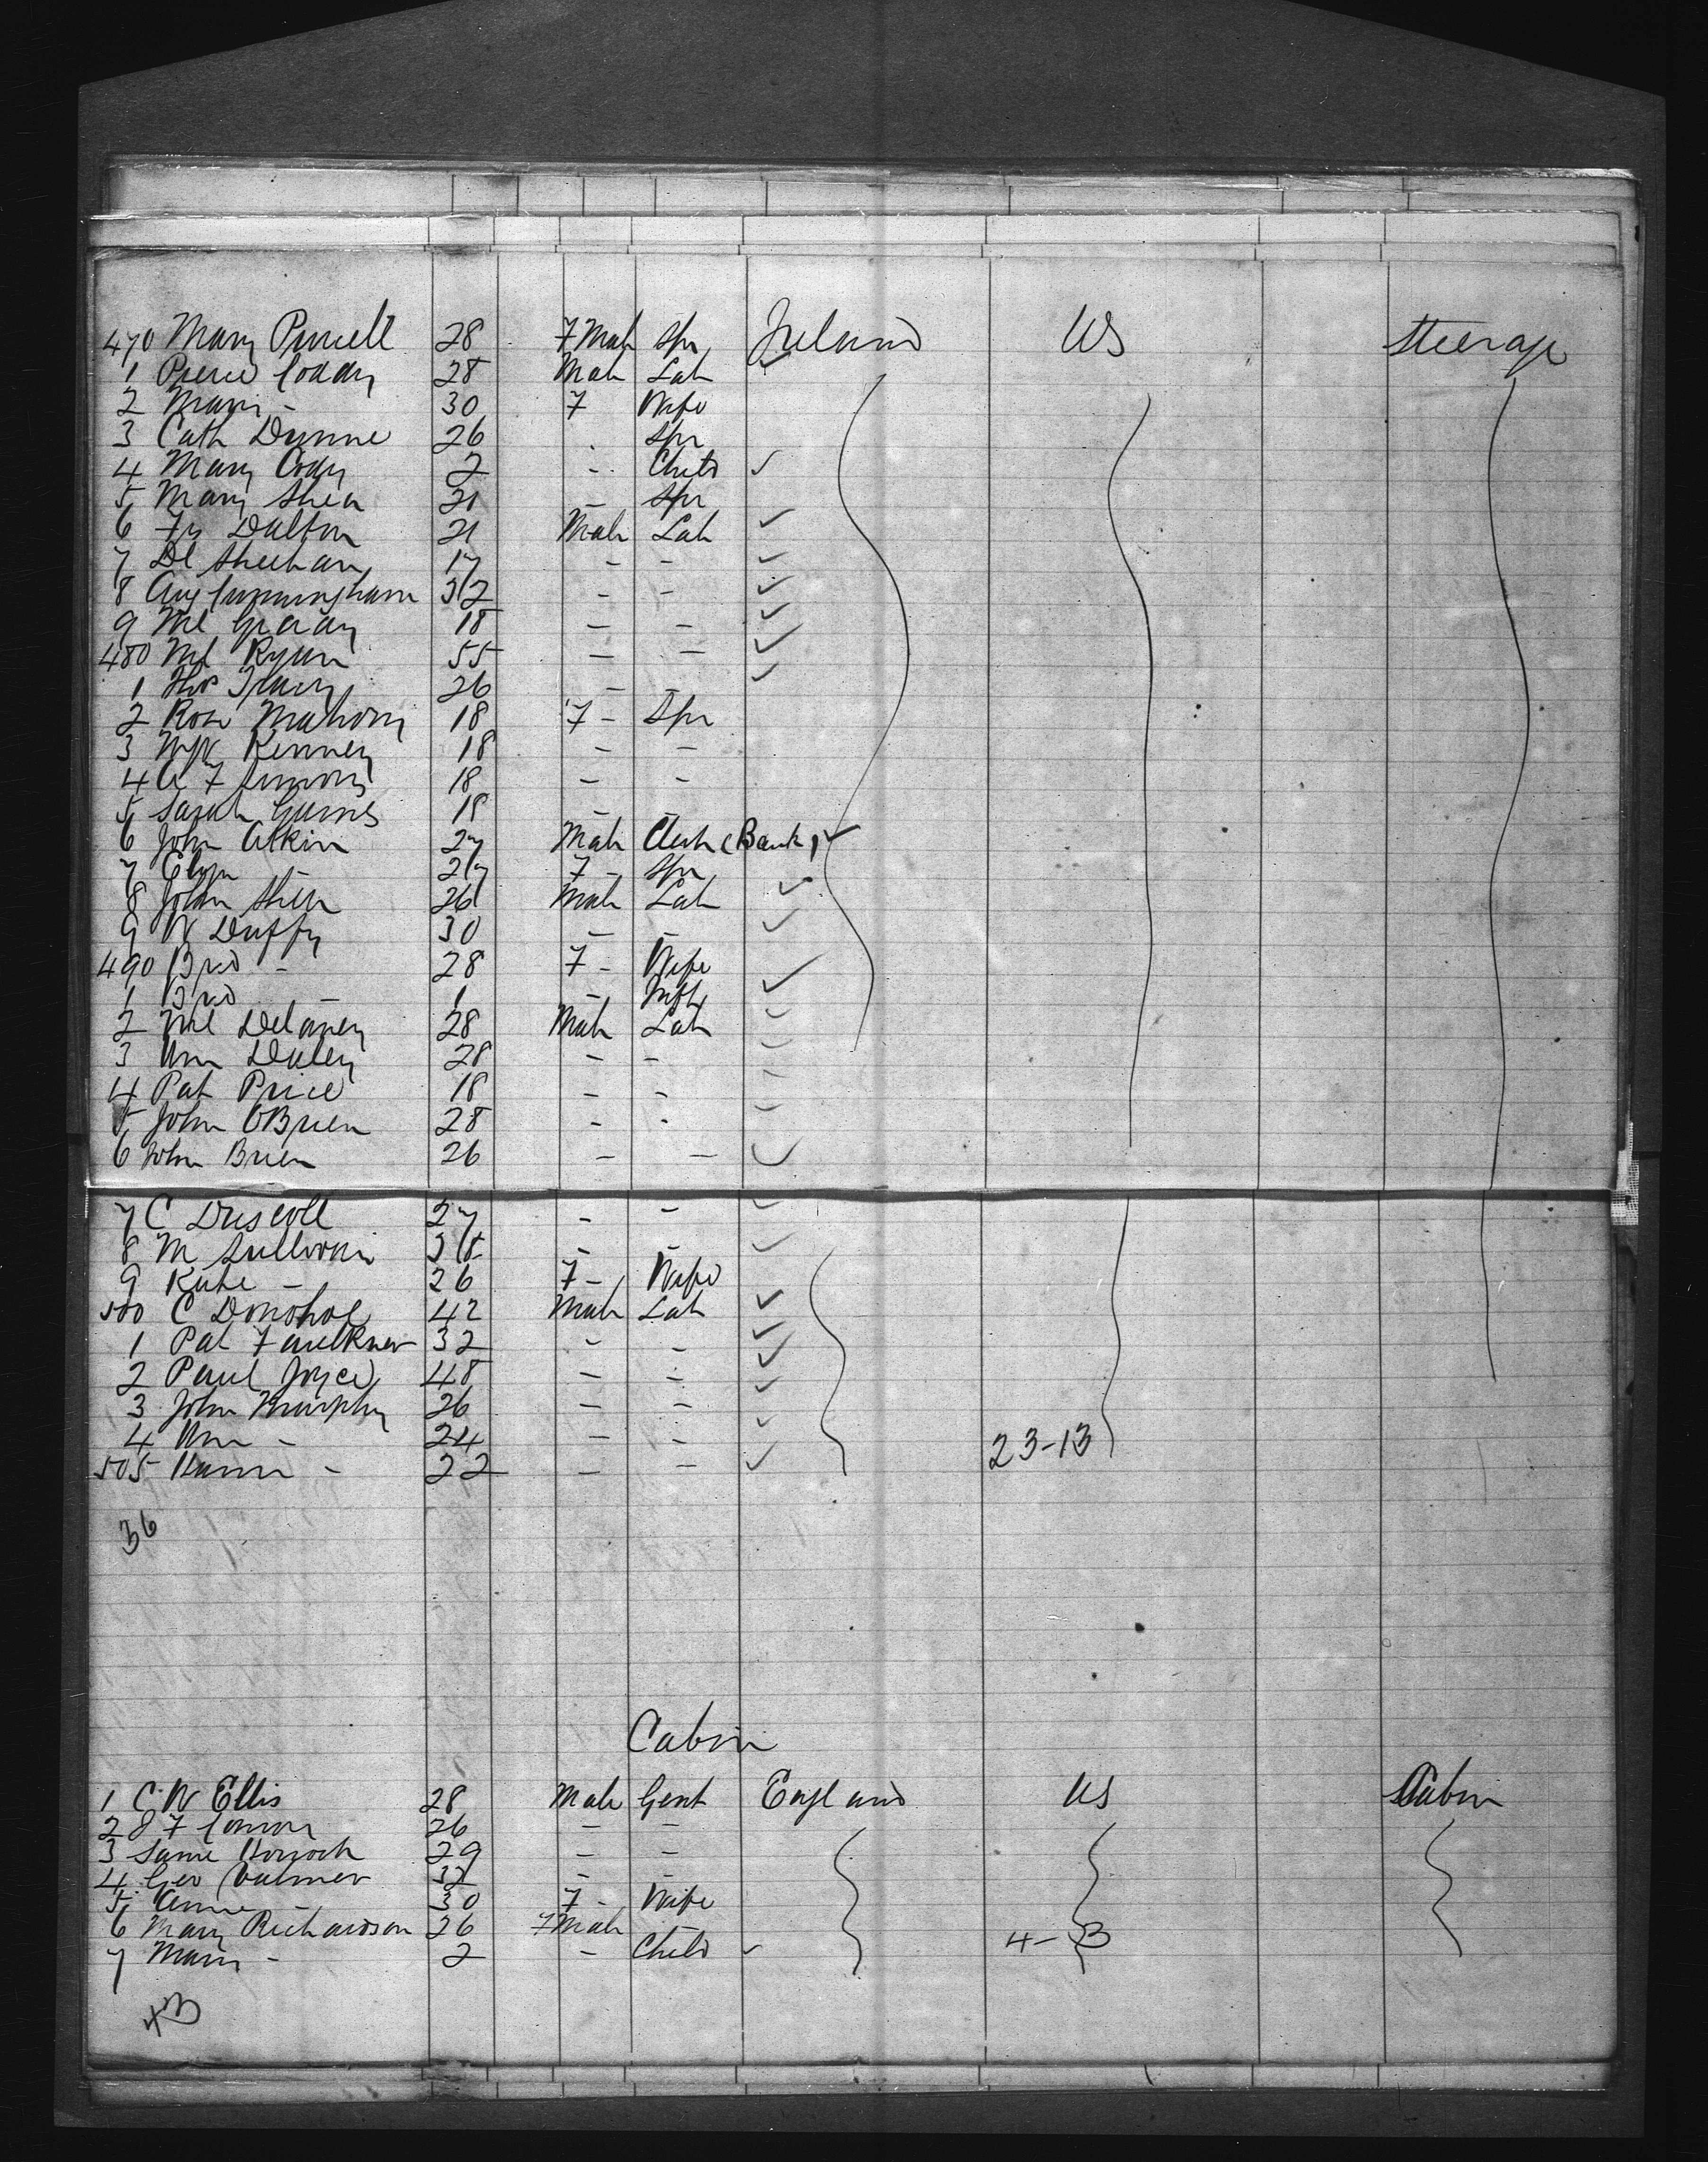 470 Mary Purcell 28 7 Male Spr Ireland US Steerage
1 Pierce Coddy 28 Male Lab
2 Mary - 30 7 Wife
3 Cath Dynne 26 Spr
4 Mary Cody 2 - Child
5 Mary Shea 21 - Spr
6 Fr Dalton 21 Male Lab
7 Dl Sheehan 17 - -
8 Aug Cunningham 32 - -
9 Ml Grady 18 - -
480 Ml Ryan 55 - -
1 Thos Tracy 26 - -
2 Rose Mahony 18 7 - Spr
3 Kenney 18 - -
4 18 - -
5 Sarah Garnes 18 - -
6 John Atkin 27 Male Clerk (Bank)
7 Elyn - 27 7 - Spr
8 John Shea 26 Male Lab
9 W Duffy 30 - -
490 Brid - 28 7 - Wife
1 Brid - 1 - Inft
2 Ml Delaney 28 Male Lab
3 Wm Daley 28 - -
4 Pat Price 18 - -
5 John OBrien 28 - -
6 John Brien 26 - -
7 C Driscoll 27 - -
8 M Sullivan 38 - -
9 Kate - 26 7 - Wife
500 C Donohoe 42 Male Lab
1 Pat Faulkner 32 - -
2 Paul Joyce 48 - -
3 John Murphy 26 - -
4 Wm - 24 - - 23-13
505 - 22 - -
36
Cabin
1 C W Ellis 28 Male Gent England US Cabin
2 26 - -
3 29 - -
4 Geo 32 - -
5 Anne - 30 7 - Wife
6 Mary Richardson 26 7 Male
7 Mary - 2 - Child 4-3
43